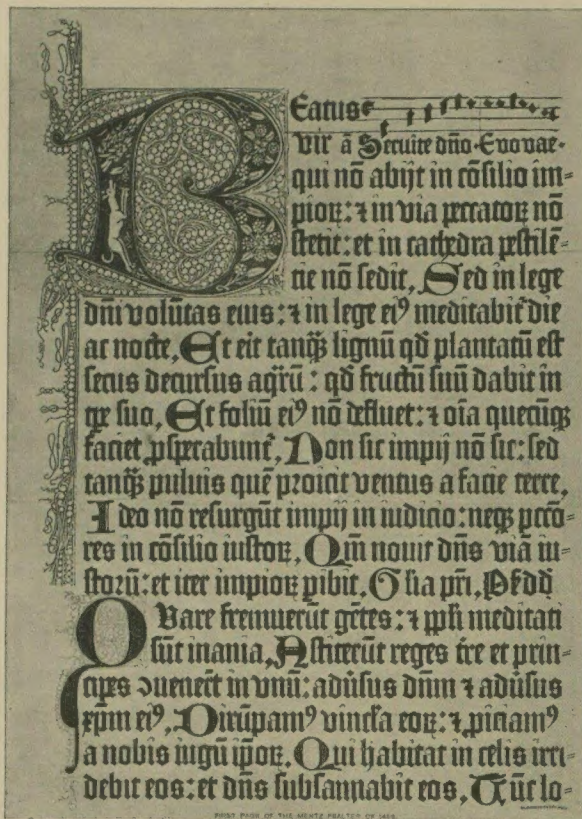 Beatus
vir ã Seruite dño. Evovae=
qui nõ abijt in cõsilio im=
pioꝝ: ⁊ in via peccatoꝝ nõ
stetit: et in cathedra pestilẽ=
tie nõ sedit, Sed in lege
dñi volũtas eius: ⁊ in lege ei⁹ meditabit᷑ die
ac nocte, Et erit tanq̃ꝫ lignũ qd̃ plantatũ est
secus decursus aq̃rũ: qd̃ fructũ suũ dabit in
tꝑe suo, Et foliũ ei⁹ nõ defluet: ⁊ oĩa quecũqꝫ
faciet ꝓsperabunt᷑, Non sic impij nõ sic: sed
tanq̃ꝫ puluis quẽ proicit ventus a facie terre,
Ideo nõ resurgũt impij in iudicio: neqꝫ pctõ=
res in cõsilio iustoꝝ, Qm̃ nouit dñs viã iu=
storũ: et iter impioꝝ ꝑibit, Glia pr̃i, P̃s dd̃
Quare fremuerũt gẽtes: ⁊ ppl̃i meditati
sũt inania, Astiterũt reges tr̃e et prin=
cipes ↄuenerũt in vnũ: adũsus dñm ⁊ adũsus
xp̃m ei⁹, Dirũpam⁹ vincła eoꝝ: ⁊ ꝓiciam⁹
a nobis iugũ ip̃oꝝ, Qui habitat in celis irri=
debit eos: et dñs subsannabit eos, Tũc lo=
FIRST PAGE OF THE MENTZ PSALTER OF